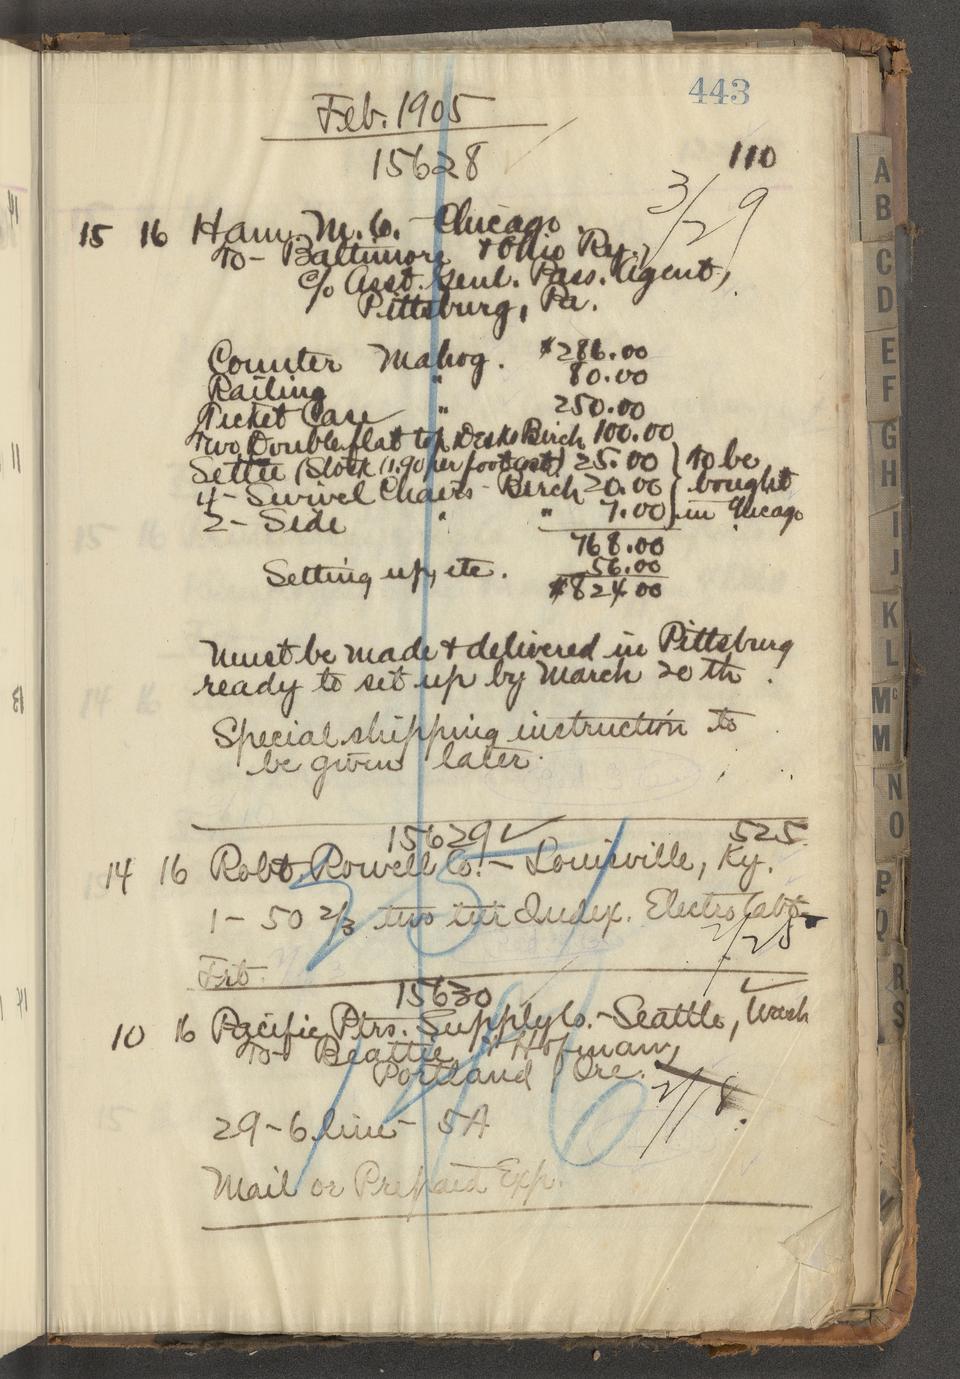 443
Feb. 1905
15628
110
3/29
15 16 Ham. M. Co. - Chicago.
To - Baltimore & Ohio Ry.
c/o Asst. Genl. Pass. Agent,
Pittsburg, Pa.
Counter Mahog. $286.00
Railing " 80.00
Ticket Case " 250.00
Two Double flat top Desks Birch 100.00
Settee (Stock (1.90 per foot cost) 25.00 } to be
4 - Swivel Chairs - Birch 20.00 } bought
2 - Side " " 7.00 } in Chicago
768.00
Setting up, etc. 56.00
$824.00
Must be made & delivered in Pittsburg
ready to set up by March 20th.
Special shipping instruction to
be given later.
15629 ✓ 525
14 16 Robt. Rowell Co. - Louisville, Ky.
1 - 50 2/3 two tier Index. Electro Cabt.
2/25
Frt.
15630
10 16 Pacific Ptrs. Supply Co. - Seattle, Wash
To - Beattie & Hofman,
Portland Ore.
2/18.
29 - 6 line - 5A
Mail or Prepaid Exp.
A
B
C
D
E
F
G
H
I
J
K
L
Mc
M
N
O
P
Q
R
S